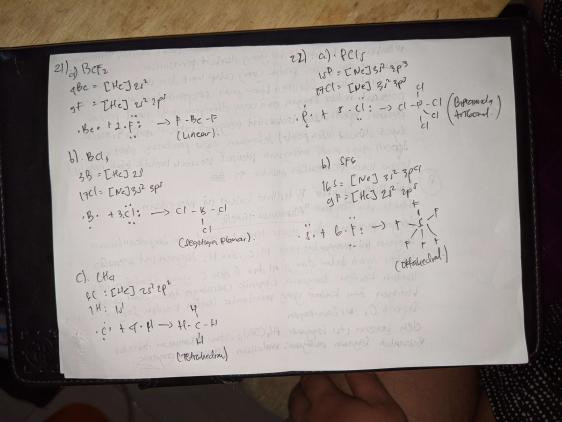 21) a) BeF₂
₄Be = [He] 2s²
₉F = [He] 2s² 2p⁵
·Be· + 2·F: → F - Be - F
(Linear).
b). BCl₃
₅B = [He] 2s²
₁₇Cl = [Ne] 3s² 3p⁵
·B· + 3·Cl: → Cl - B - Cl
Cl
(Segitiga planar).
c). CH₄
₆C : [He] 2s² 2p²
₁H : 1s¹
·C· + 4·H → H - C - H
H
H
(Tetrahedral)
22) a). PCl₅
₁₅P = [Ne] 3s² 3p³
₁₇Cl = [Ne] 3s² 3p⁵
·P· + 5·Cl: → Cl - P - Cl
Cl
Cl
Cl
(Bipiramida trigonal.)
b) SF₆
₁₆S = [Ne] 3s² 3p⁴
₉F = [He] 2s² 2p⁵
·S· + 6·F: → F S F
F
F F F
(Oktahedral.)